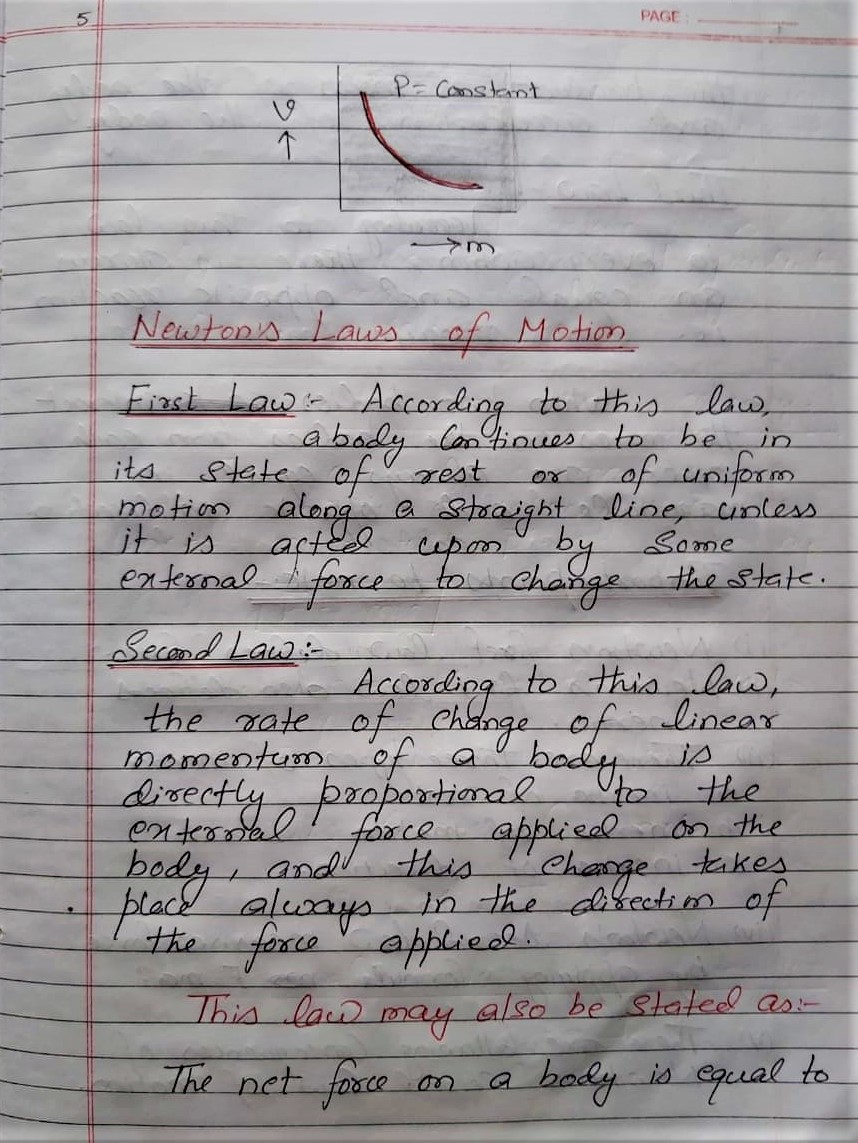 5
PAGE :
P = Constant
v
↑
→ m
Newton's Laws of Motion
First Law :- According to this law,
a body Continues to be in
its state of rest or of uniform
motion along a straight line, unless
it is acted upon by Some
external force to change the state.
Second Law :-
According to this law,
the rate of change of linear
momentum of a body is
directly proportional to the
external force applied on the
body, and this change takes
place always in the direction of
the force applied.
This law may also be stated as :-
The net force on a body is equal to